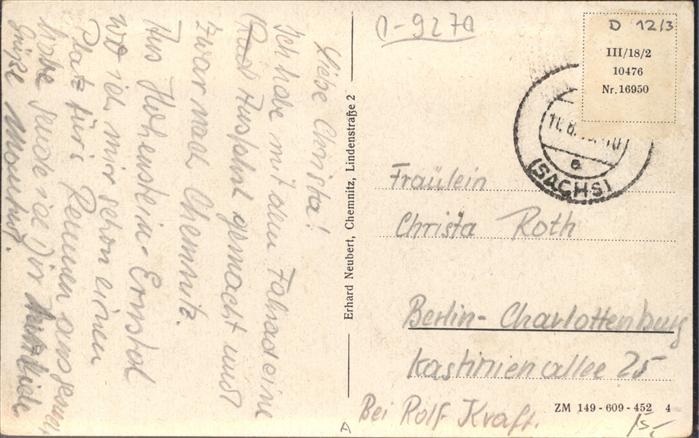 D-9270
D 12/3
III/18/2
10476
Nr. 16950
(SACHS)
a
Liebe Christa!
Ich habe mit dem Fahrad eine
Rad Ausfahrt gemacht und
zwar nach Chemnitz.
Aus Hohenstein-Ernstal
wo ich mir schon einen
Platz für's Rennen ausgesucht
habe sende ich Dir
Grüße
Erhard Neubert, Chemnitz, Lindenstraße 2
Fräulein
Christa Roth
Berlin-Charlottenburg
Kastinienallee 25
Bei Rolf Kraft.
ZM 149-609-452 4
A
15,-